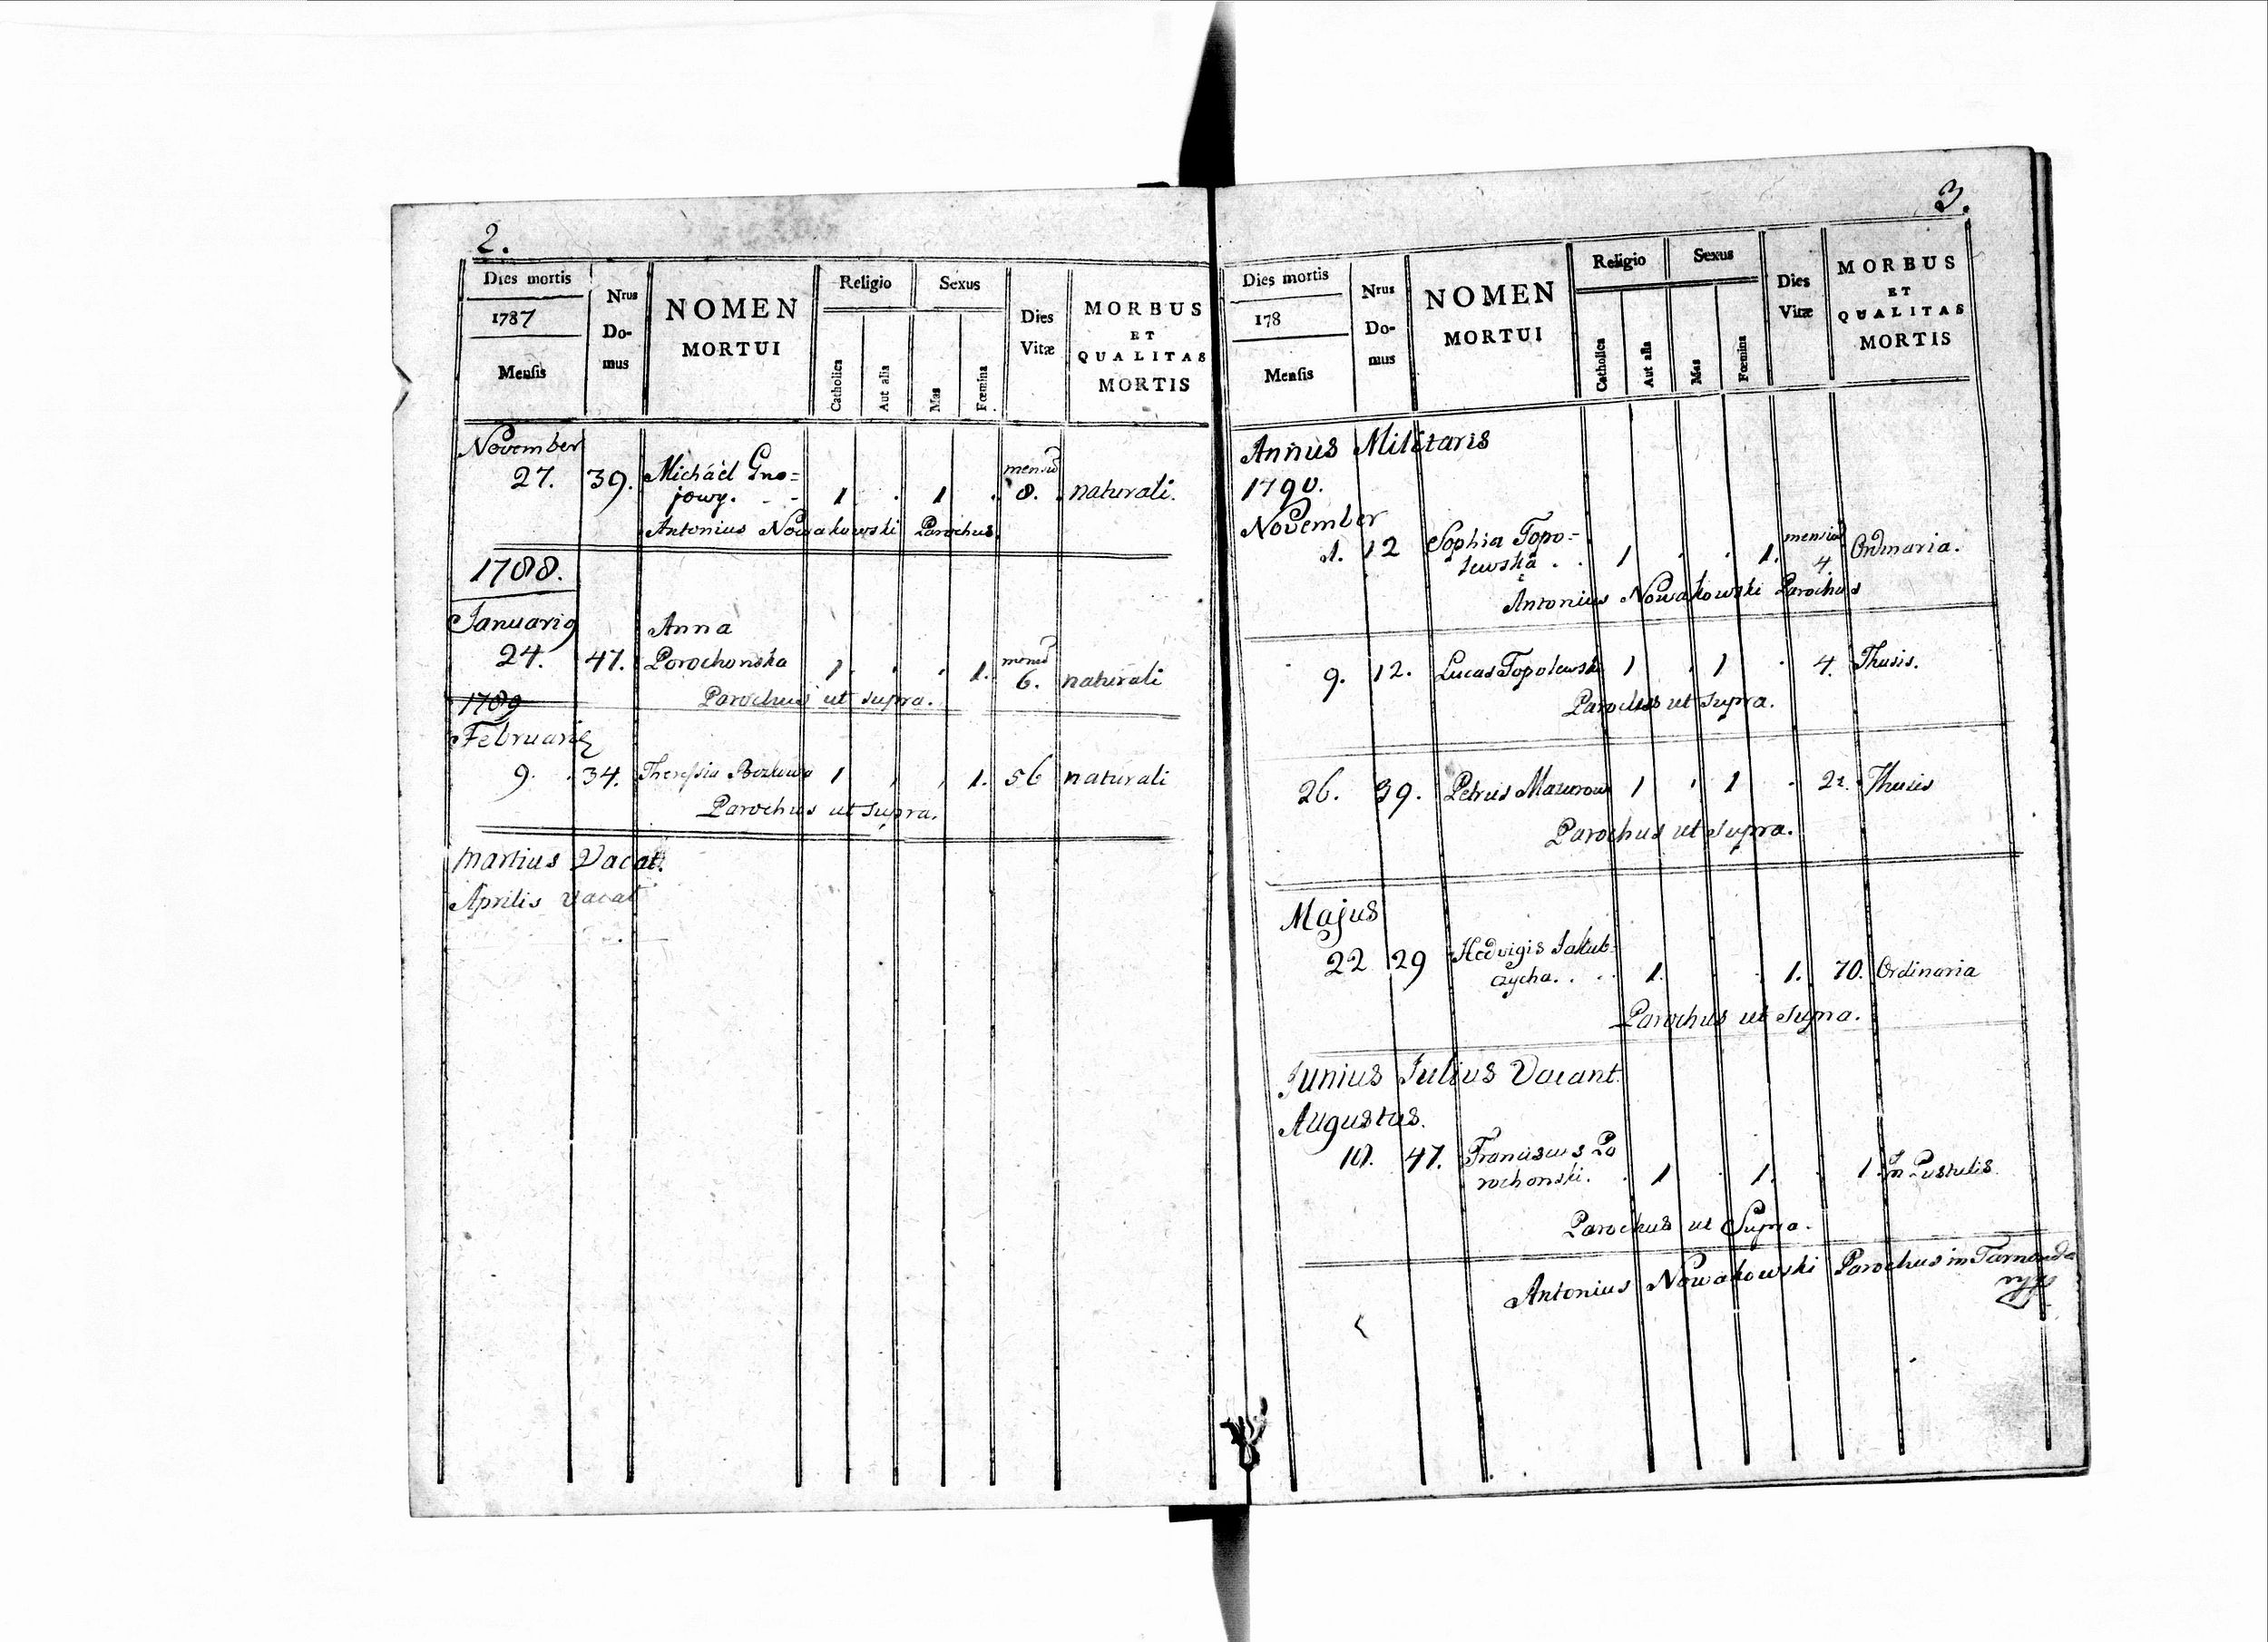 2.
Dies mortis
1787
Mensis
Nrus
Do-
mus
NOMEN
MORTUI
Religio
Catholica
Aut alia
Sexus
Mas
Fœmina
Dies
Vitæ
MORBUS
ET
QUALITAS
MORTIS
November
27. 39. Michael Gno=
jowy. - - 1 . 1 . mensiũ 8. naturali.
Antonius Nowakowski Parochus
1788.
Januariq
24. 47. Anna
Porochonska 1 . . 1. mensiũ 6. naturali
Parochus ut supra.
1789
Februarii
9. 34. Theressia 1 . . 1. 56 naturali
Parochus ut supra.
Martius Vacat.
Aprilis vacat
3.
Dies mortis
178
Mensis
Nrus
Do-
mus
NOMEN
MORTUI
Religio
Catholica
Aut alia
Sexus
Mas
Fœmina
Dies
Vitæ
MORBUS
ET
QUALITAS
MORTIS
Annus Militaris
1790.
November
1. 12 Sophia Topo=
lewska . . 1 . . 1. mensiũ 4. Ordinaria.
Antonius Nowakowski Parochus
9. 12. Lucas Topolewski 1 . 1 . 4. Thusis.
Parochus ut supra.
26. 39. Petrus Mazurow 1 . 1 . 22. Thusis
Parochus ut supra.
Majus
22 29 Hedvigis Jakub=
czycha. . . 1. . . 1. 70. Ordinaria
Parochus ut supra.
Junius Julius Vacant.
Augustus.
18. 47. Franciscus Po
rochonski. . 1 . 1. . 1. in Pustulis.
Parochus ut Supra.
Antonius Nowakowski Parochus in Tarnorud